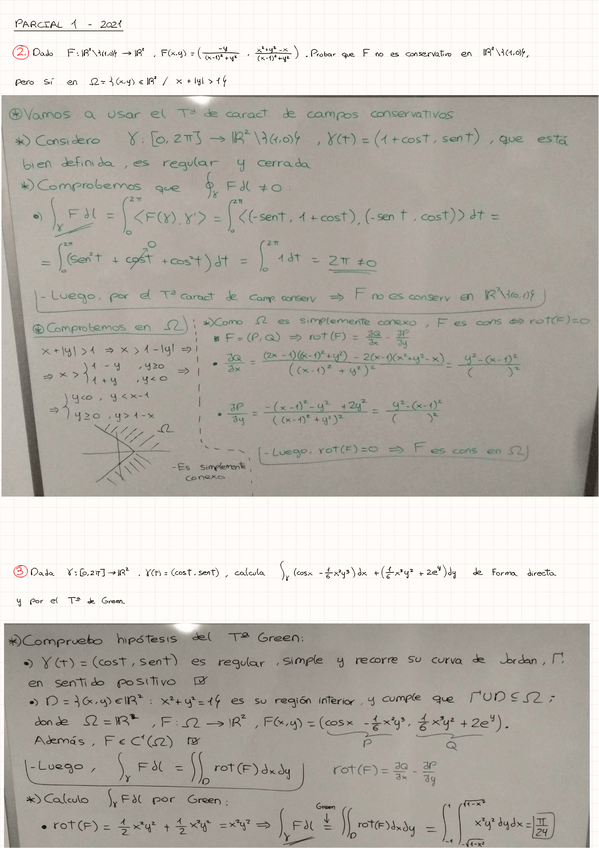 PARCIAL 1 - 2021
2. Dado F: ℝ²\{(1,0)} → ℝ², F(x,y) = (-y/((x-1)²+y²), (x²+y²-x)/((x-1)²+y²)). Probar que F no es conservativo en ℝ²\{(1,0)},
pero sí en Ω = {(x,y) ∈ ℝ² / x + |y| > 1}
⊛ Vamos a usar el Tª de caract de campos conservativos
*) Considero γ: [0, 2π] → ℝ²\{(1,0)}, γ(t) = (1+cost, sent), que está
bien definida, es regular y cerrada
*) Comprobemos que ∮_γ Fdl ≠ 0:
•) ∫_γ Fdl = ∫_0^{2π} <F(γ), γ'> = ∫_0^{2π} <(-sent, 1+cost), (-sent, cost)> dt =
= ∫_0^{2π} (sen²t + cost + cos²t) dt = ∫_0^{2π} 1dt = 2π ≠ 0
0
- Luego, por el Tª caract de camp conserv ⇒ F no es conserv en ℝ²\{(1,0)}
⊛ Comprobemos en Ω
x + |y| > 1 ⇒ x > 1 - |y| ⇒
⇒ x > { 1 - y , y ≥ 0
1 + y , y < 0 ⇒
⇒ { y < 0 , y < x - 1
y ≥ 0 , y > 1 - x
Ω
- Es simplemente
conexo
*) Como Ω es simplemente conexo, F es cons ⇔ rot(F) = 0
F = (P, Q) ⇒ rot(F) = ∂Q/∂x - ∂P/∂y
• ∂Q/∂x = ((2x-1)((x-1)²+y²) - 2(x-1)(x²+y²-x))/((x-1)²+y²)² = (y²-(x-1)²)/( )²
• ∂P/∂y = (-(x-1)²-y²+2y²)/((x-1)²+y²)² = (y²-(x-1)²)/( )²
- Luego, rot(F) = 0 ⇒ F es cons en Ω
3. Dada γ: [0, 2π] → ℝ², γ(t) = (cost, sent), calcula ∫_γ (cosx - 1/6 x²y³)dx + (1/6 x³y² + 2e^y)dy de forma directa
y por el Tª de Green.
*) Compruebo hipótesis del Tª Green:
•) γ(t) = (cost, sent) es regular, simple y recorre su curva de Jordan, Γ,
en sentido positivo ☑
•) D = {(x,y) ∈ ℝ²: x²+y² = 1} es su región interior, y cumple que Γ∪D ⊆ Ω;
donde Ω = ℝ², F: Ω → ℝ², F(x,y) = (cosx - 1/6 x²y³, 1/6 x³y² + 2e^y).
P Q
Además, F ∈ C¹(Ω) ☑
- Luego, ∫_γ Fdl = ∬_D rot(F) dxdy
rot(F) = ∂Q/∂x - ∂P/∂y
*) Calculo ∫_γ Fdl por Green:
Green
• rot(F) = 1/2 x²y² + 1/2 x²y² = x²y² ⇒ ∫_γ Fdl = ∬_D rot(F) dxdy = ∫_{-1}^{1} ∫_{-√(1-x²)}^{√(1-x²)} x²y² dydx = π/24